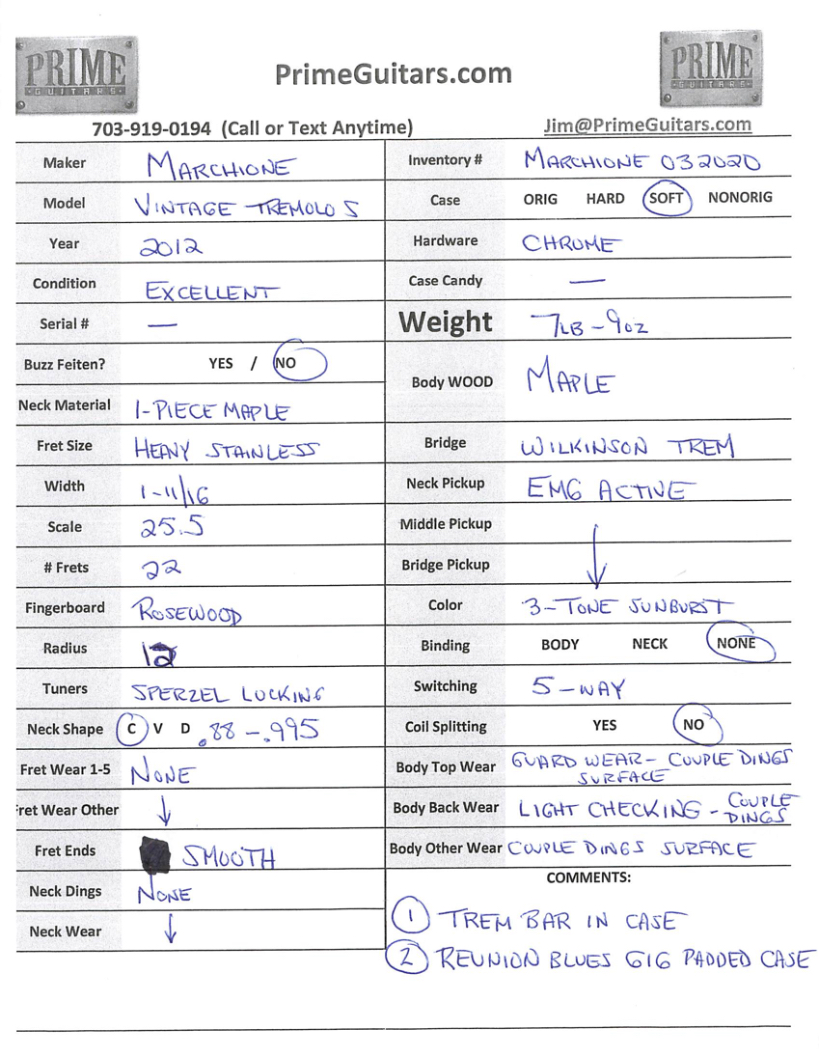 PRIME
GUITARS
PrimeGuitars.com
PRIME
GUITARS
703-919-0194 (Call or Text Anytime)
Jim@PrimeGuitars.com
Maker MARCHIONE
Model VINTAGE TREMOLO S
Year 2012
Condition EXCELLENT
Serial # —
Buzz Feiten? YES / NO
Neck Material 1-PIECE MAPLE
Fret Size HEAVY STAINLESS
Width 1-11/16
Scale 25.5
# Frets 22
Fingerboard ROSEWOOD
Radius 12
Tuners SPERZEL LOCKING
Neck Shape C V D .88-.995
Fret Wear 1-5 NONE
Fret Wear Other ↓
Fret Ends SMOOTH
Neck Dings NONE
Neck Wear ↓
Inventory # MARCHIONE 032020
Case ORIG HARD SOFT NONORIG
Hardware CHROME
Case Candy —
Weight 7LB-9oz
Body WOOD MAPLE
Bridge WILKINSON TREM
Neck Pickup EMG ACTIVE
Middle Pickup
Bridge Pickup ↓
Color 3-TONE SUNBURST
Binding BODY NECK NONE
Switching 5-WAY
Coil Splitting YES NO
Body Top Wear GUARD WEAR- COUPLE DINGS
SURFACE
Body Back Wear LIGHT CHECKING - COUPLE
DINGS
Body Other Wear COUPLE DINGS SURFACE
COMMENTS:
1 TREM BAR IN CASE
2 REUNION BLUES GIG PADDED CASE